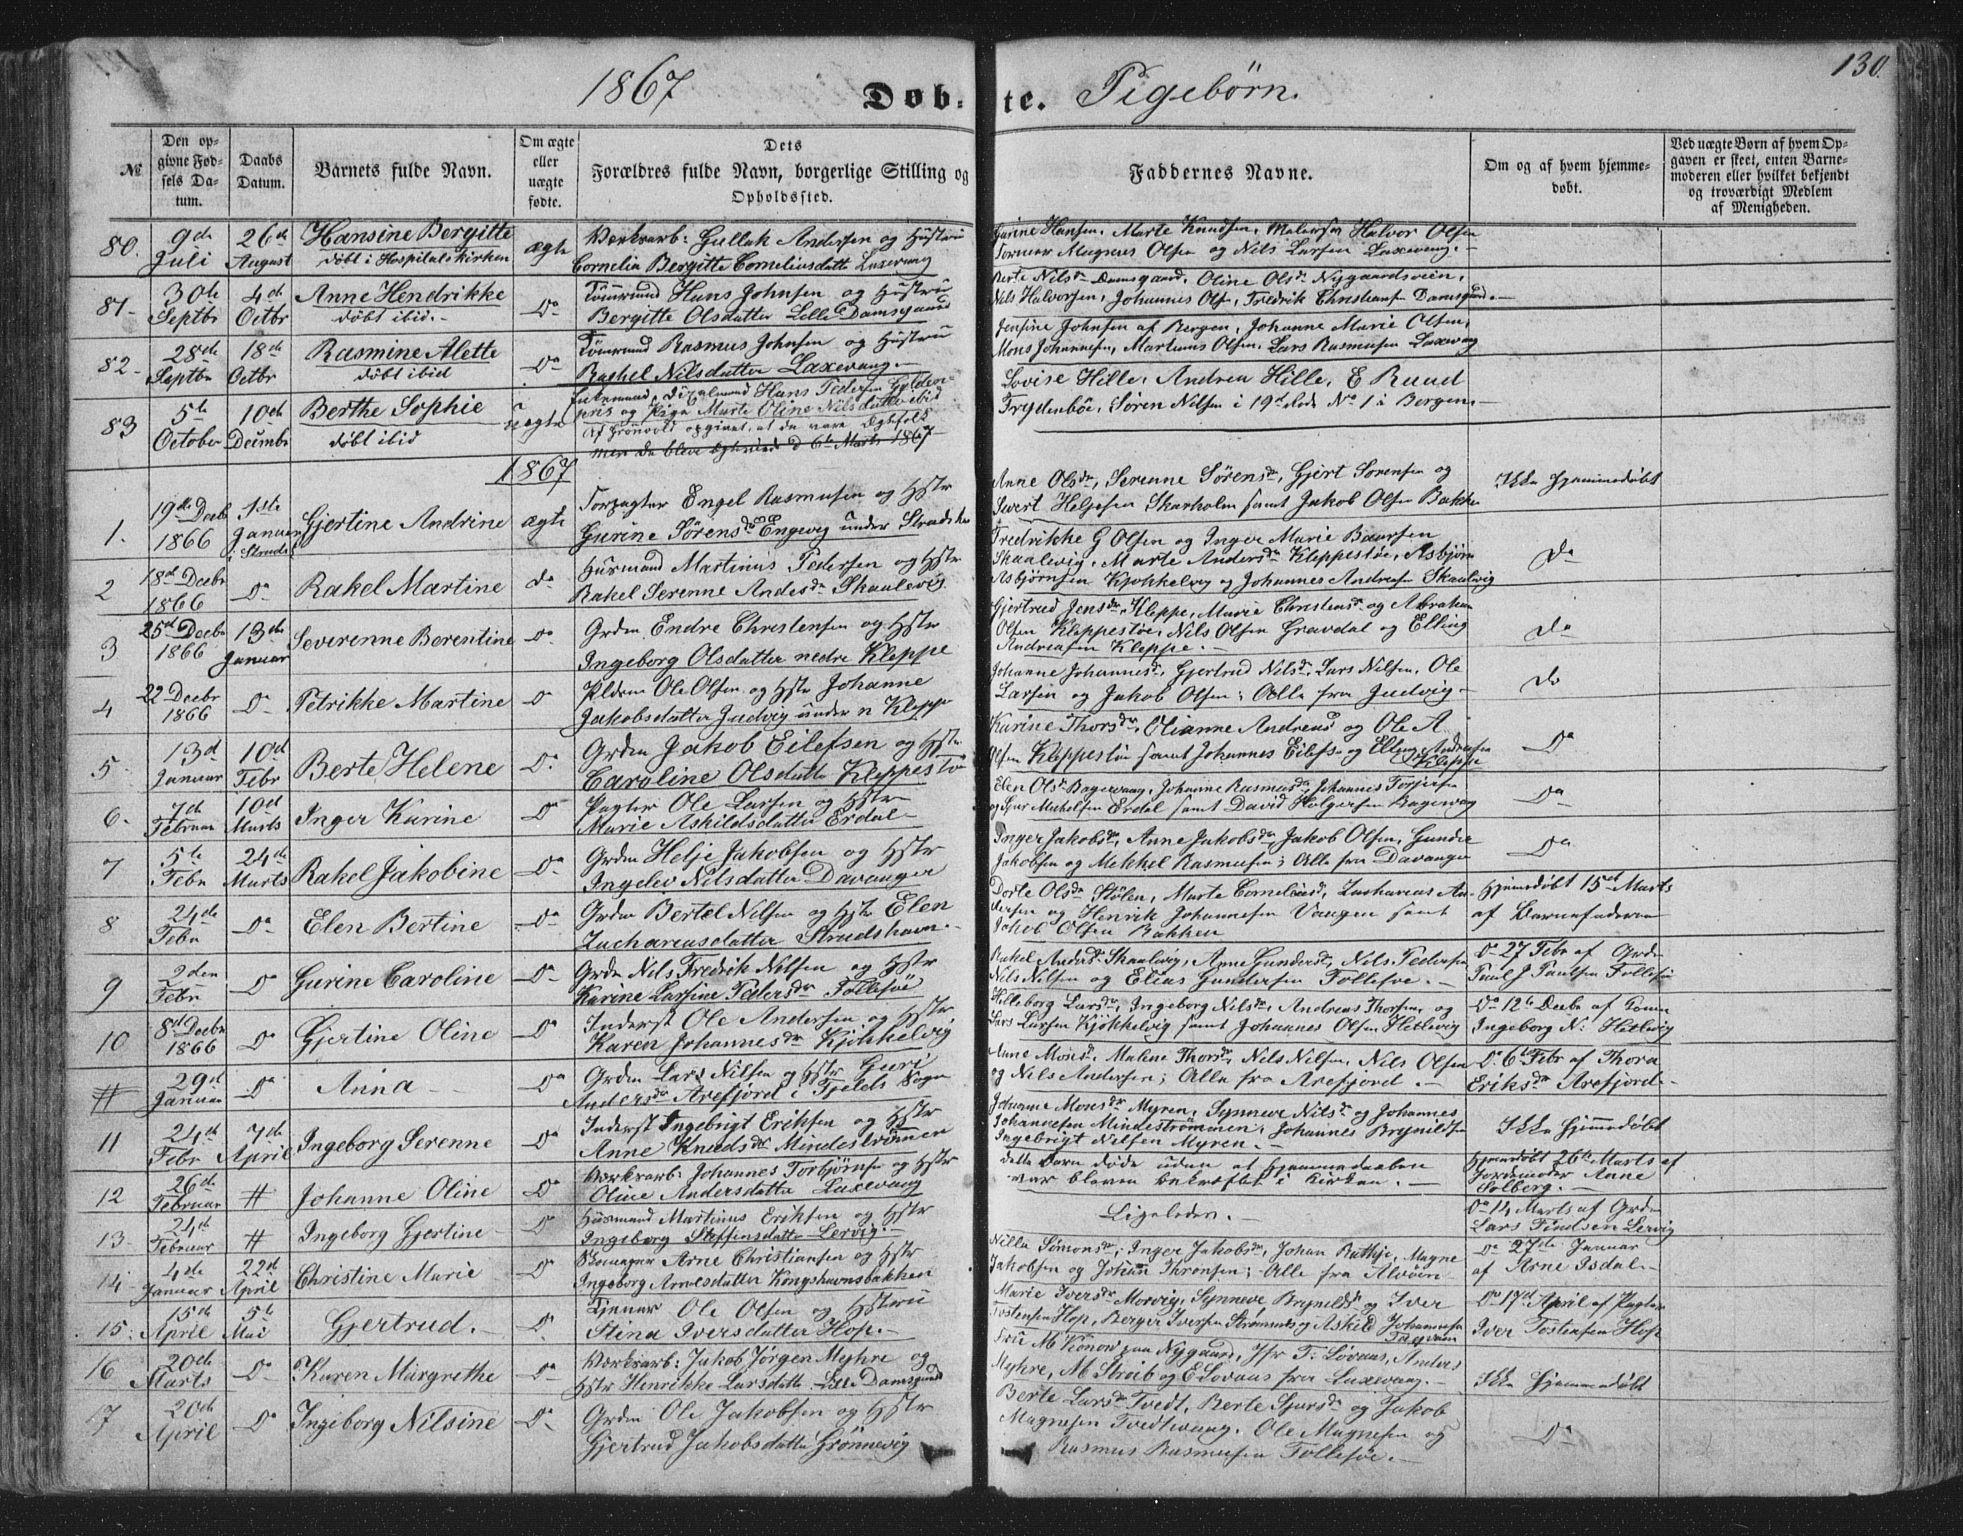 1867 Døb-te. Pigebørn. 130.
№ | Den opgivne Fødsels Datum. | Daabs Datum. | Barnets fulde Navn. | Om ægte eller uægte fødte. | Dets Forældres fulde Navn, borgerlige Stilling og Opholdssted. | Faddernes Navne. | Om og af hvem hjemmedøbt. | Ved uægte Børn af hvem Opgaven er skeet, enten Barnemoderen eller hvilket bekjendt og troværdigt Medlem af Menigheden.
80. 9de Juli | 26de August | Hansine Bergitte døbt i Hospitalskirken | ægte
Værksarb: Gullak Andersen og Hustru
Cornelia Bergitte Corneliusdatter Laxevaag
Hansen, Marte Knudsen, Halvor Olsen
Magnus Olsen og Nils Larsen Laxevaag.
81. 30te Septbr | 4de Octbr | Anne Hendrikke døbt ibid. | Do
Tømmermd Hans Johnsen og Hustru
Bergitte Olsdatter Lille Damsgaard
Berte Nilsdr Damsgaard, Oline Olsdr Nygaardsveien,
Nils Halvorsen, Johannes Olsen, Fredrik Christiansen Damsgaard.
82. 28de Septbr | 18de Octbr | Rasmine Alette døbt ibid | Do
Tømmermd Rasmus Johnsen og Hustru
Rachel Nilsdatter Laxevaag.
Jensine Johnsen af Bergen, Johanne Marie Olsen,
Mons Johannesen, Martinus Olsen, Lars Rasmusen Laxevaag
83 5te October | 10de Decembr | Berthe Sophie døbt ibid | uægte
Enkemand, Hans Pedersen Gylden-
pris og Pige Marte Oline Nilsdatter ibid
af Grönvold opgivet, at de vare Ægtefolk
men de bleve ægteviede d 6te Marts 1867
Lovise Hille, Andrea Hille, E Ruud
Frydenbøe, Søren Nilsen i 19de Rode No 1 i Bergen.
1867
1. 19de Decbr 1866 | 1ste Januar i Struds | Gjertine Andrine | ægte
Forpagter Engel Rasmusen og Hstr
Gurine Sørensdr Engevig under Strudsh
Anne Olsdr, Serenne Sørensdr, Gjert Sørensen og
Sivert Helgesen Skarholm samt Jakob Olsen Bakke
Ikke hjemmedøbt
2 18de Decbr 1866 | Do | Rakel Martine | do
Husmand Martinus Pedersen og Hstr
Rakel Serenne Andersdr Skaalevig
Fredrikke G Olsen og Inger Marie Baarsen
Skaalvig, Marte Andersdr Kleppestøe, Asbjørn
Asbjørnsen Kjøkkelvig og Johannes Andreasen Skaalvig
Do
3 25de Decbr 1866 | 13de Januar | Severenne Berentine | Do
Grdm Endre Christensen og Hstr
Ingeborg Olsdatter nedre Kleppe
Gjertrud Jensdr Kleppe, Marie Christensdr og Abraham
Olsen Kleppestøe, Nils Olsen Gravdal og Elling
Andreasen Kleppe.
Do
4 22 Decbr 1866 | Do | Petrikke Martine | Do
Pldsm Ole Olsen og Hstr Johanne
Jakobsdatter Judvig under n Kleppe
Johanne Johannesdr, Gjertrud Nilsdr, Lars Nilsen, Ole
Larsen og Jakob Olsen; Alle fra Judvig
Do
5. 13de Januar | 10de Febr | Berte Helene | Do
Grdm Jakob Eilefsen og Hstr
Caroline Olsdatter Kleppestø
Karine Thorsdr, Olianne Andreasd og Ole A
Olsen Kleppestøe samt Johannes Eilefs. og Elling Andreasen Kleppe
Do
6. 7de Februar | 10de Marts | Inger Karine | Do
Pagter Ole Larsen og Hstr
Marie Askildsdatter Erdal
Elen Olsdr Bagervaag, Johanne Rasmusdr, Johannes
og Sjur Michelsen Erdal samt David Holgersen Bagervaag
Do
7 5te Febr | 24de Marts | Rakel Jakobine | Do
Grdm Helje Jakobsen og Hstr
Ingelev Nilsdatter Davanger
Inger Jakobsdr, Anne Jakobsdr, Jakob Olsen, Gunder
Jakobsen og Mikkel Rasmusen; Alle fra Davanger
Do
8 24de Febr | Do | Elen Bertine | Do
Grdm Bertel Nilsen og Hstr Elen
Zachariasdatter Strudshavn.
Dorte Olsdr Stølen, Marte Corneliusdr, Zacharias An-
dersen og Henrik Johannesen Vaagen samt
Jakob Olsen Bakken
Hjemdøbt 15de Marts
af Barnefaderen
9 2den Febr | Do | Gurine Caroline | Do
Grdm Nils Fredrik Nilsen og Hstr
Karine Larsine Pedersdr Follesøe
Rakel Andersdr Skaalvig, Anne Gundersdr, Nils Pedersen
Nils Nilsen og Elias Gundersen Follesøe.
Do 27 Febr af Grdm
Poul J Poulsen Follesøe
10 8de Decbr 1866 | Do | Gjertine Oline | Do
Inderst Ole Andersen og Hstr
Karen Johannesdr Kjøkkelvig
Hilleborg Larsdr, Ingeborg Nilsdr, Andreas Thorsen, og
Lars Larsen Kjøkkelvig samt Johannes Olsen Hetlevig
Do 12te Decbr af
Ingeborg N. Hetlevig
# 29de Januar | Do | Anna | Do
Grdm Lars Nilsen og Hstr Guri
Andersdr Arefjord i Fjelds Sogn
Anne Monsdr, Malene Thorsdr, Nils Nilsen, Nils Olsen
og Nils Andersen; Alle fra Arefjord.
Do 6te Febr af Thora
Eriksdr Arefjord
11 24de Febr | 7de April | Ingeborg Serenne | Do
Inderst Ingebrigt Eriksen og Hstr
Anne Knudsdr Mindestrømmen
Johanne Monsdr Myren, Synneve Nilsdr og Johannes
Johannesen Mindestrømmen, Johannes Brynildsen
Ingebrigt Nilsen Myren.
Ikke hjemmedøbt
12 26de Februar | # | Johanne Oline | Do
Værksarb. Johannes Torbjørnsen og Hstr
Oline Andersdatter Laxevaag
dette Barn døde uden at Hjemmedaaben
var bleven bekræftet i Kirken.
Hjemdøbt 26de Marts af
Jordemoder Anne
Solberg.
13. 24de Februar | # | Ingeborg Gjertine | Do
Husmand Martinus Eriksen og Hstr
Ingeborg Steffensdatter Lervig.
Ligeledes.
Do 14 Marts af Grdm
Lars Lervig
14 4de Januar | 22de April | Christine Marie | Do
Skomager Arne Christiansen og Hstr
Ingeborg Arnesdatter Kongshavnsbakken
Nilla Simonsdr, Inger Jakobsdr, Johan Rathje, Magne
Jakobsen og Johan Thronsen; Alle fra Alvøen
Do 27de Januar
af Arne Isdal.
15. 15de April | 5te Mai | Gjertrud. | Do
Tjener Ole Olsen og Hustru
Stina Iversdatter Hop.
Marie Iversdr Morvig, Synneve Brynildsdr og Iver
Tostensen Hop, Berger Iversen Strømsnes og Askild Johannesen
Do 17de April af Pagter
Iver Tostensen Hop
16 20de Marts | Do | Karen Margrethe | Do
Værksarb: Jakob Jørgen Myhre og
Hstr Henrikke Larsdatter Lille Damsgaard
Fru M Konow paa Nygaard, Jfr T. Løvaas, Anders
Myhre, M Streib og E Lovaas fra Laxevaag.
Ikke hjemmedøbt
17 20de April | Do | Ingeborg Nilsine | Do
Grdm Ole Jakobsen og Hstr
Gjertrud Jakobsdatter Grønnevig
Berte Larsdr Tvedt, Berte Sjursdr og Jakob
Magnesen Tvedtevaag, Ole Magnesen og
Rasmus Rasmusen Follesøe.
Do